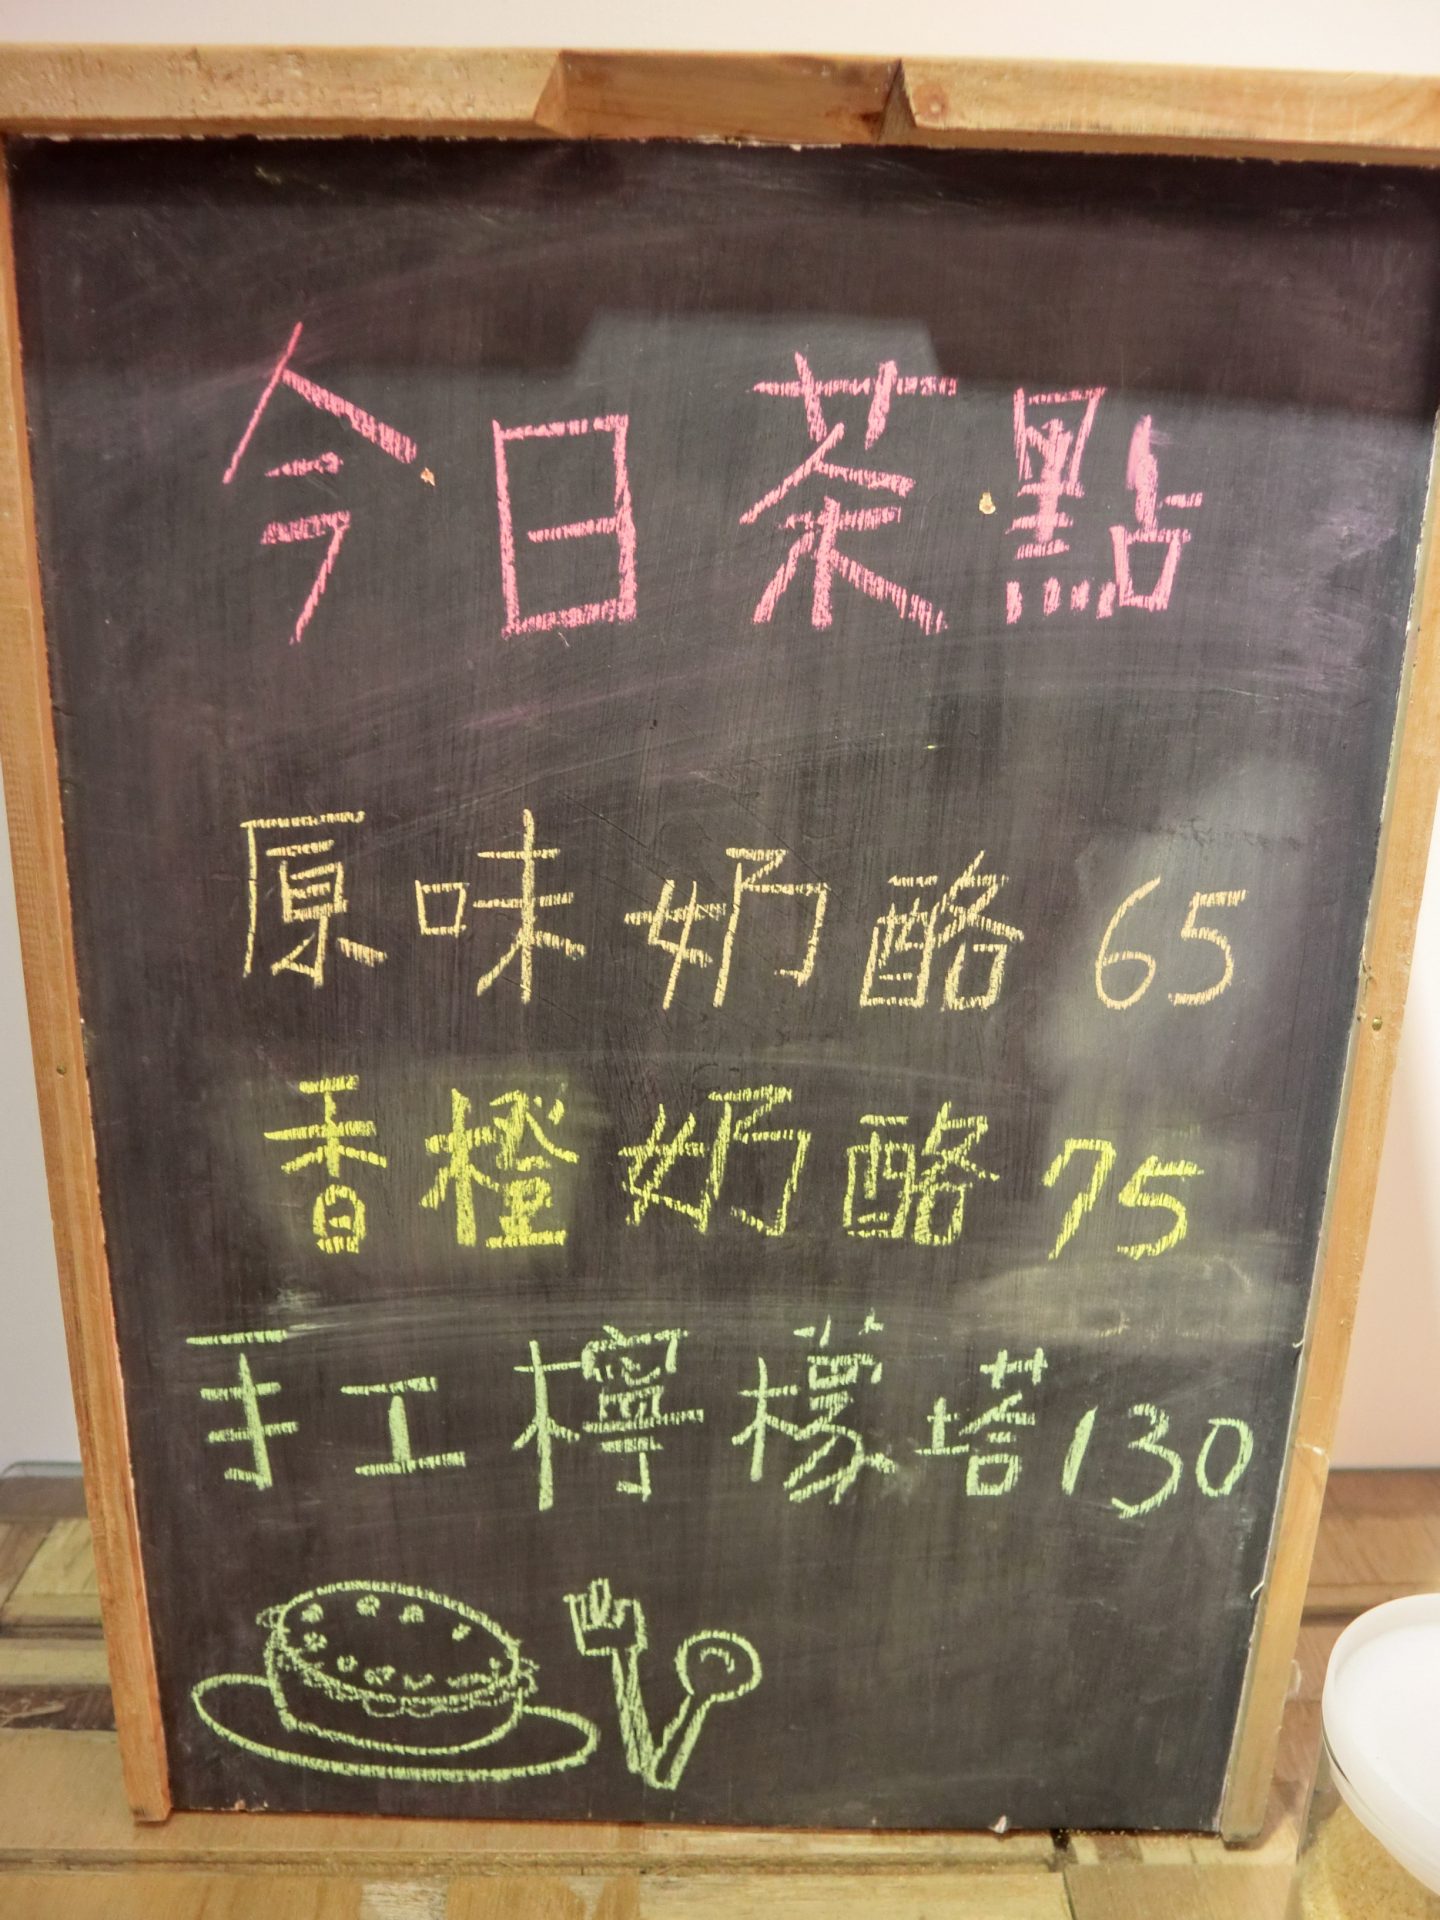 今日茶點
原味奶酪 65
香橙奶酪 75
手工檸檬塔 130